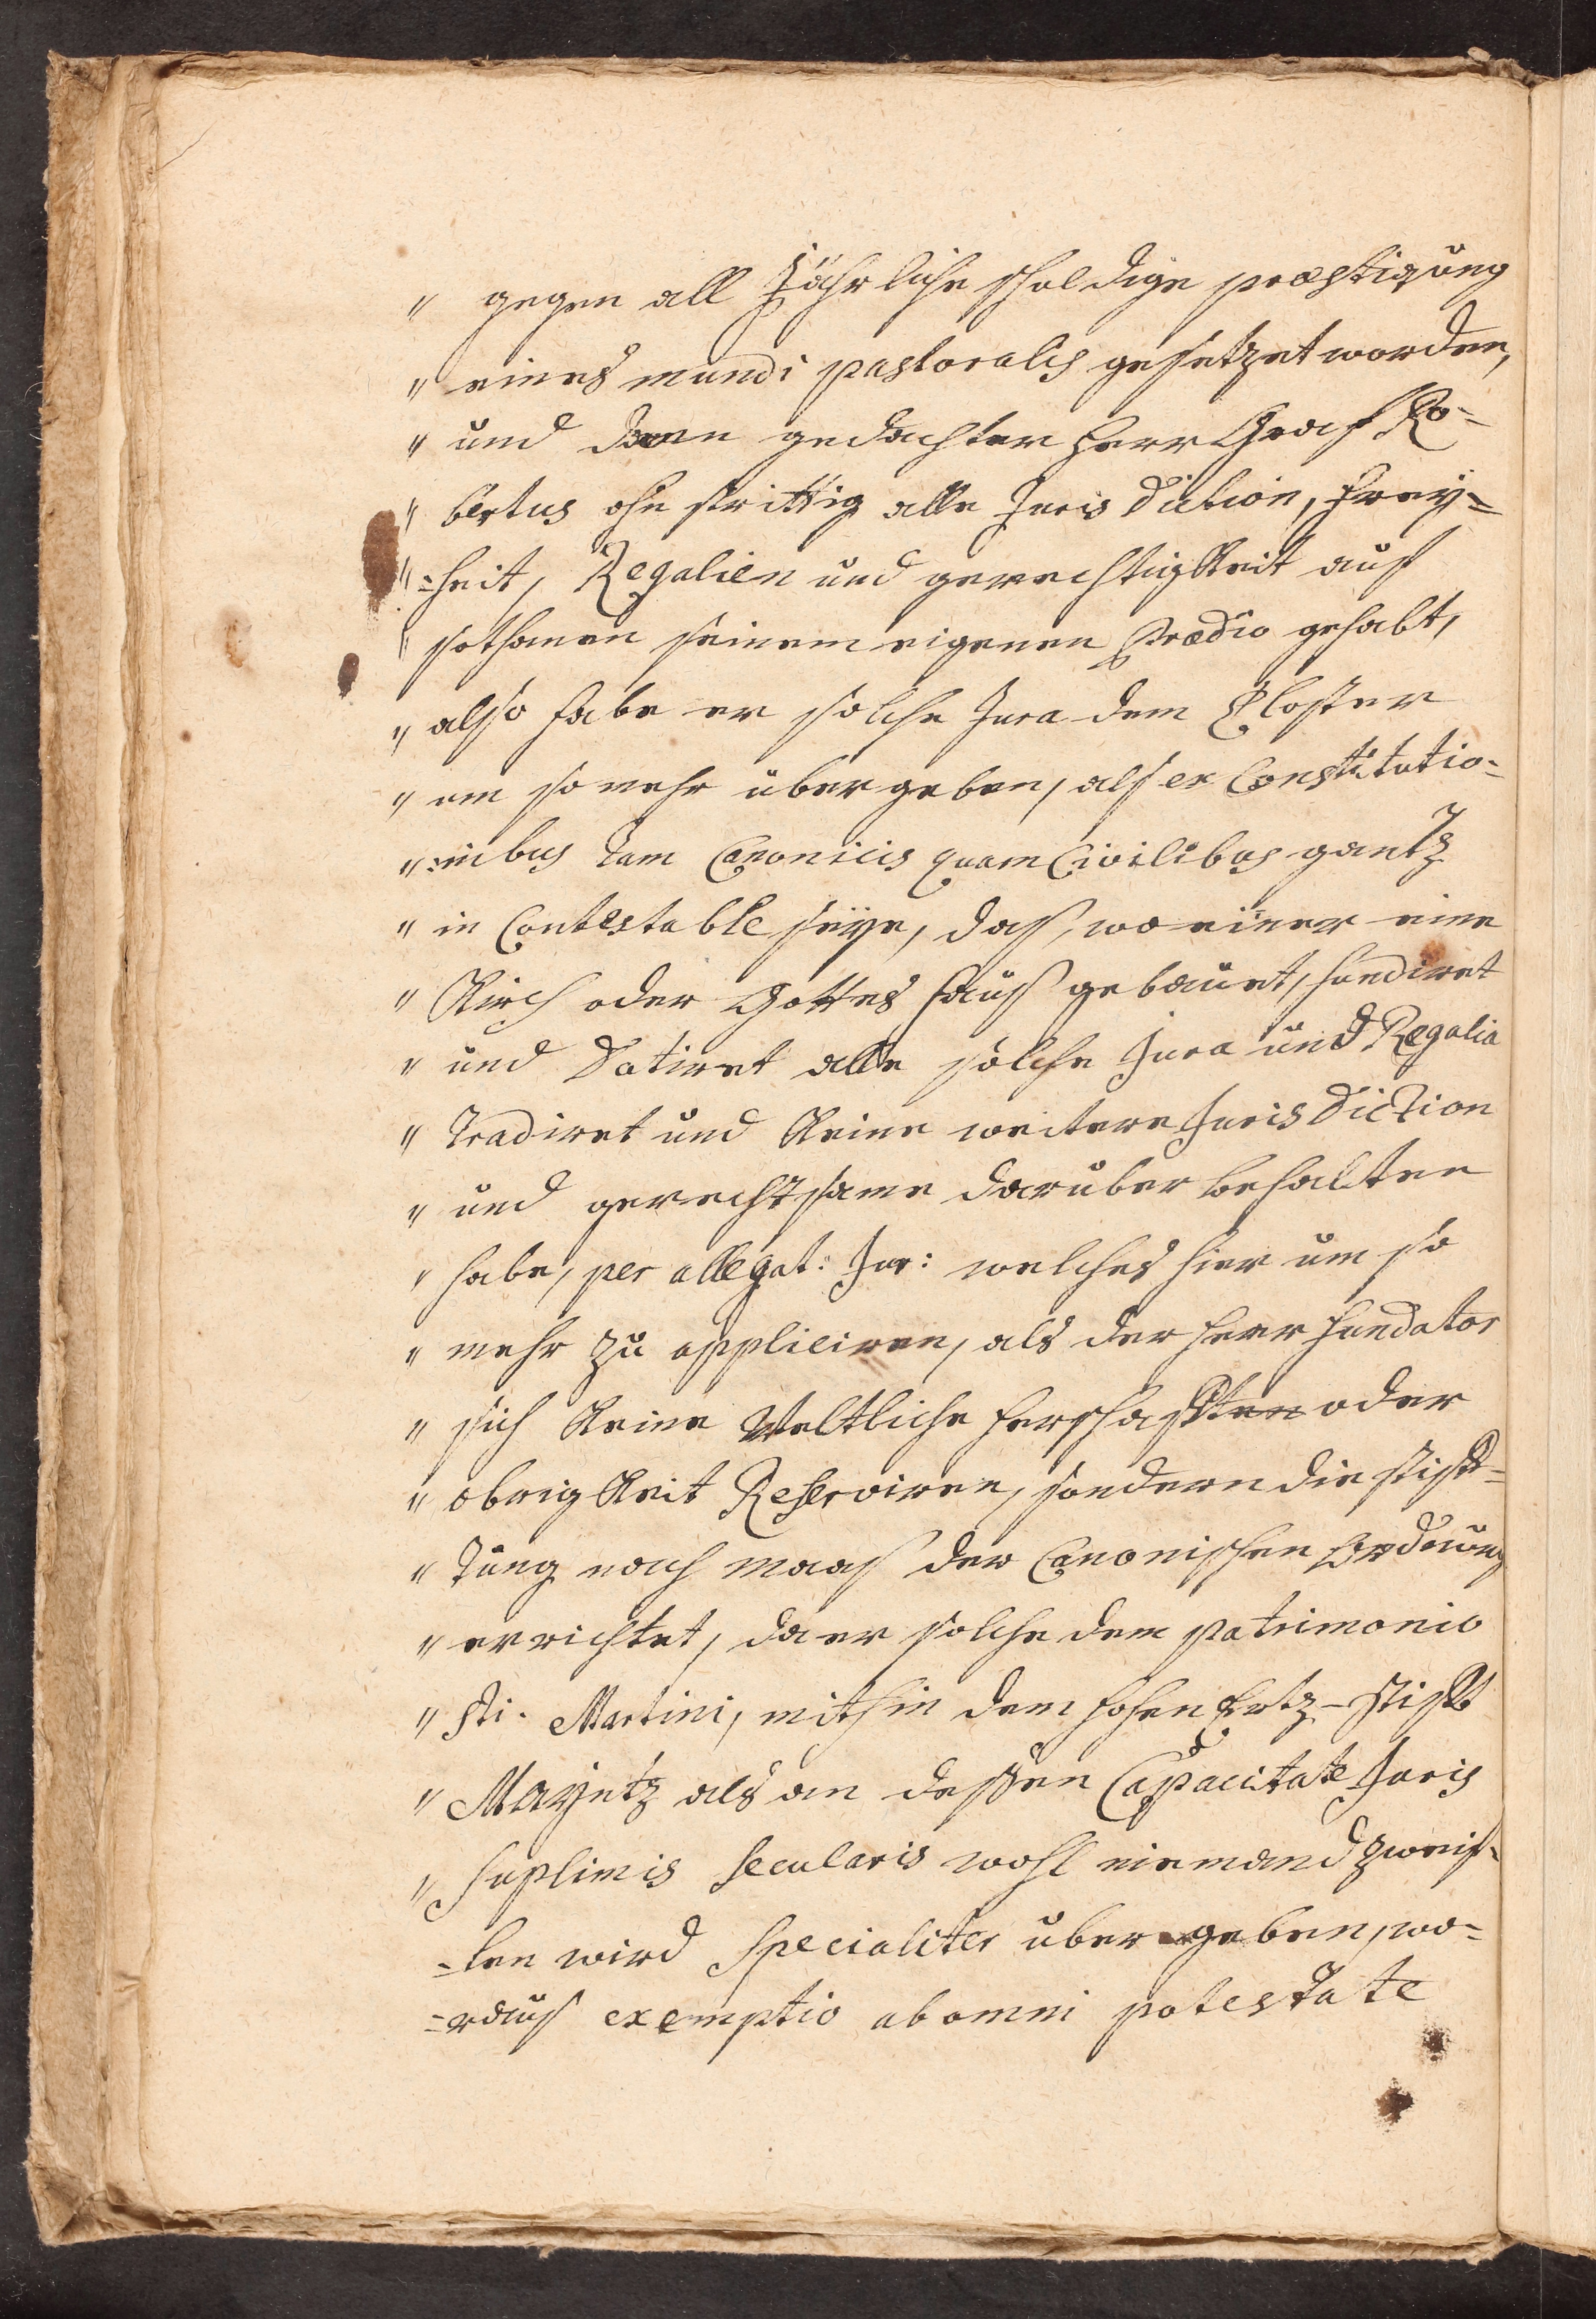 " gegen all Jährliche schuldige præstigung
" eines mundi pastoralis gesetzet worden,
" und dann gedachter Herr Graf Ro-
" bertus ohn strittig alle Juris diction, Frey=
" =heit, Regalien und gerechtigkeit auf
" sothanen seinem eigenen Prædio gehabt,
" also habe er solche Jura dem Closter
" um so mehr übergeben, als ex Constitutio-
" :nibus tam Canonicis quam Civilibus gantz
" in Contestable seye, daß, wo einer eine
" Kirch oder Gottes Hauß gebauet, fundiret
" und Dotiret alle solche Jura und Regalia
" Tradiret und Keine weitere Juris Diction
" und gerechtsame darüber behalten
" habe, per allegat: Jur: welches hier um so
" mehr zu appliciren, als der Herr Fundator
" sich Keine Weltliche Herschafften oder
" obrigkeit Reserviren, sondern die stifft=
" Tung nach Maas der Canonischen Ordnung
" errichtet, da er solche dem patrimonio
" Sti. Martini, mithin dem hohen Ertz-Stifft
" Mayntz als an deßen Capacitate Juris
" Suplimis Secularis wohl niemand zweif-
=len wird Specialiter übergeben, wo=
=rauß exemptio ab omni potestate